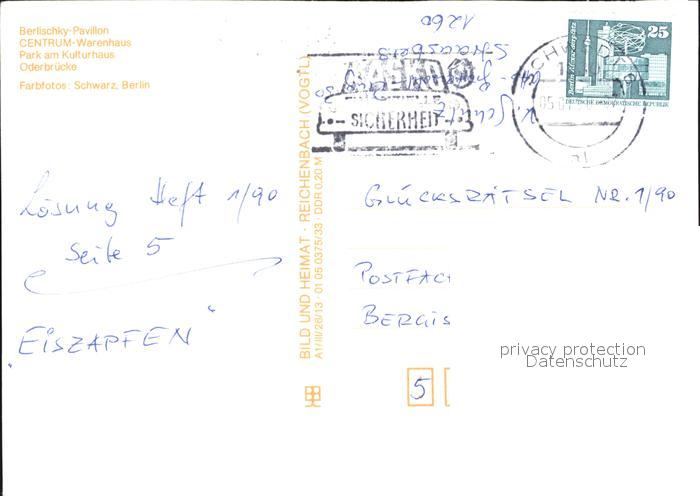 Berlischky-Pavillon
CENTRUM-Warenhaus
Park am Kulturhaus
Oderbrücke
Farbfotos: Schwarz, Berlin
BILD UND HEIMAT · REICHENBACH (VOGTL)
A1/III/26/13 · 01 05 0375/33 · DDR 0,20 M
1260
Strausberg
SICHERHEIT
25
DEUTSCHE DEMOKRATISCHE REPUBLIK
Lösung Heft 1/90
Seite 5
"EISZAPFEN"
GLÜCKSRÄTSEL NR. 1/90
POSTFACH
BERGIS
5
privacy protection
Datenschutz